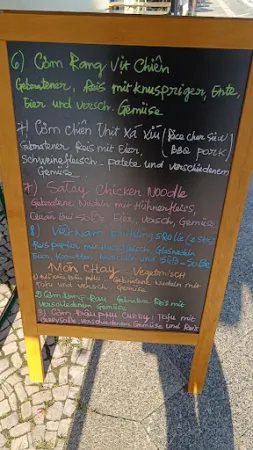 6) Cơm Rang Vịt Chiên
Gebratener Reis mit knuspriger Ente,
Eier und versch. Gemüse
7) Cơm chiên Thịt Xá Xíu (Rice char Siu
BBQ pork)
Gebratener Reis mit Eier,
Schweinefleisch und verschiedenem
Gemüse
7) Satay Chicken Noodle
Gebratene Nudeln mit Hühnerfleisch,
Eier, versch. Gemüse
8) Vietnam
Reispapier mit Glasnudeln
Eier, und Süß-Soße
Món Chay Vegetarisch
1) Gebratene Nudeln mit
Tofu und versch. Gemüse
2) Cơm Rang Rau Gebratene Reis mit
verschiedenem Gemüse
3) Cơm Đậu Phụ Curry: Tofu mit
verschiedenem Gemüse und Reis